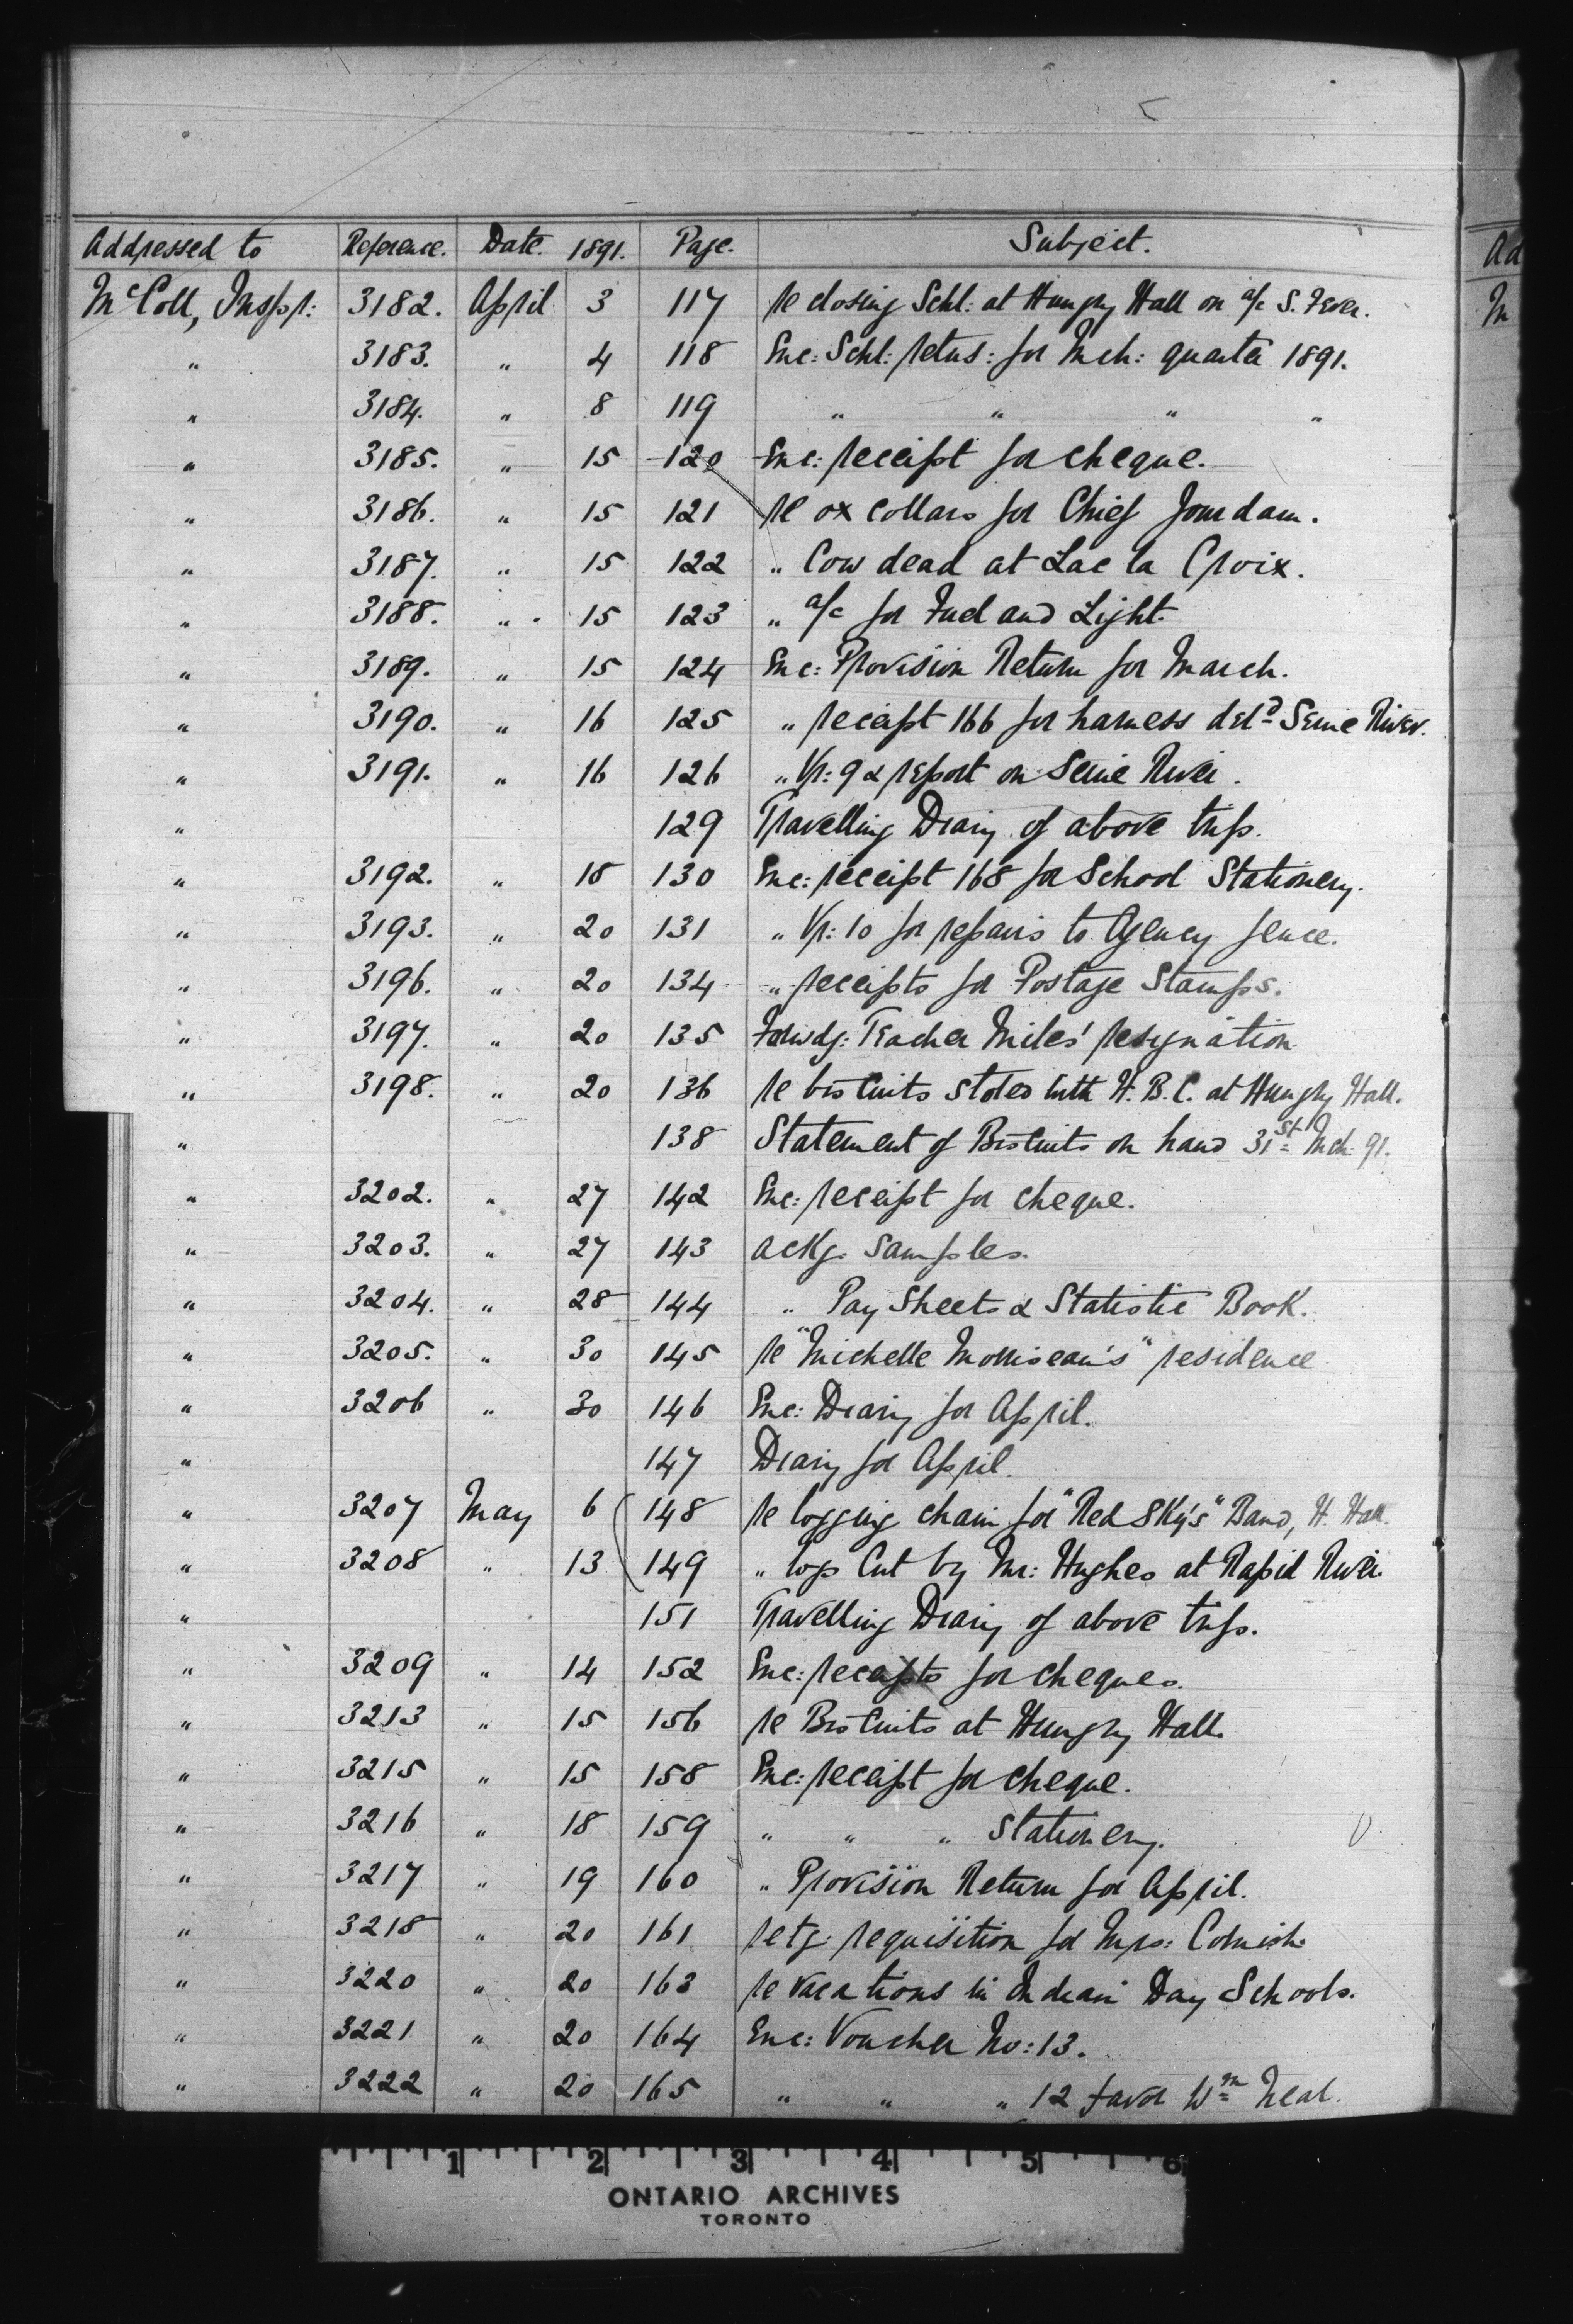 Addressed to Reference. Date. 1891. Page. Subject.
McColl, Inspr: 3182. April 3 117 re closing Schl: at Hungry Hall on a/c S. Fever.
" 3183. " 4 118 Enc: Schl: retns: for Mch: quarter 1891.
" 3184. " 8 119 " " " "
" 3185. " 15 120 Enc: receipt for cheque.
" 3186. " 15 121 re ox collars for Chief Jourdain.
" 3187. " 15 122 " Cow dead at Lac la Croix.
" 3188. " 15 123 " a/c for Fuel and Light.
" 3189. " 15 124 Enc: Provision Return for March.
" 3190. " 16 125 " receipt 166 for harness deld Seine River.
" 3191. " 16 126 " Vr: 9 & report on Seine River.
" 129 Travelling Diary of above trip.
" 3192. " 18 130 Enc: receipt 168 for School Stationery.
" 3193. " 20 131 " Vr: 10 for repairs to Agency fence.
" 3196. " 20 134 " receipts for Postage Stamps.
" 3197. " 20 135 Forwdg: Teacher Miles' resignation
" 3198. " 20 136 re biscuits stored with H.B.C. at Hungry Hall.
" 138 Statement of Biscuits on hand 31st Mch 91.
" 3202. " 27 142 Enc: receipt for cheque.
" 3203. " 27 143 ackg. samples.
" 3204. " 28 144 " Pay Sheets & Statistic Book.
" 3205. " 30 145 re "Michelle Morriseau's" residence
" 3206 " 30 146 Enc: Diary for April.
" 147 Diary for April.
" 3207 May 6 148 re logging chain for "Red Sky's" Band, H. Hall.
" 3208 " 13 149 " logs cut by Mr: Hughes at Rapid River.
" 151 Travelling Diary of above trip.
" 3209 " 14 152 Enc: receipts for cheques.
" 3213 " 15 156 re Biscuits at Hungry Hall.
" 3215 " 15 158 Enc: receipt for cheque.
" 3216 " 18 159 " " " Stationery.
" 3217 " 19 160 " Provision Return for April.
" 3218 " 20 161 retg: requisition for Mrs: Cornish.
" 3220 " 20 163 re vacations in Indian Day Schools.
" 3221 " 20 164 Enc: Voucher No: 13.
" 3222 " 20 165 " " " 12 favor Wm Neal.
Ad
M
1 2 3 4 5 6
ONTARIO ARCHIVES
TORONTO